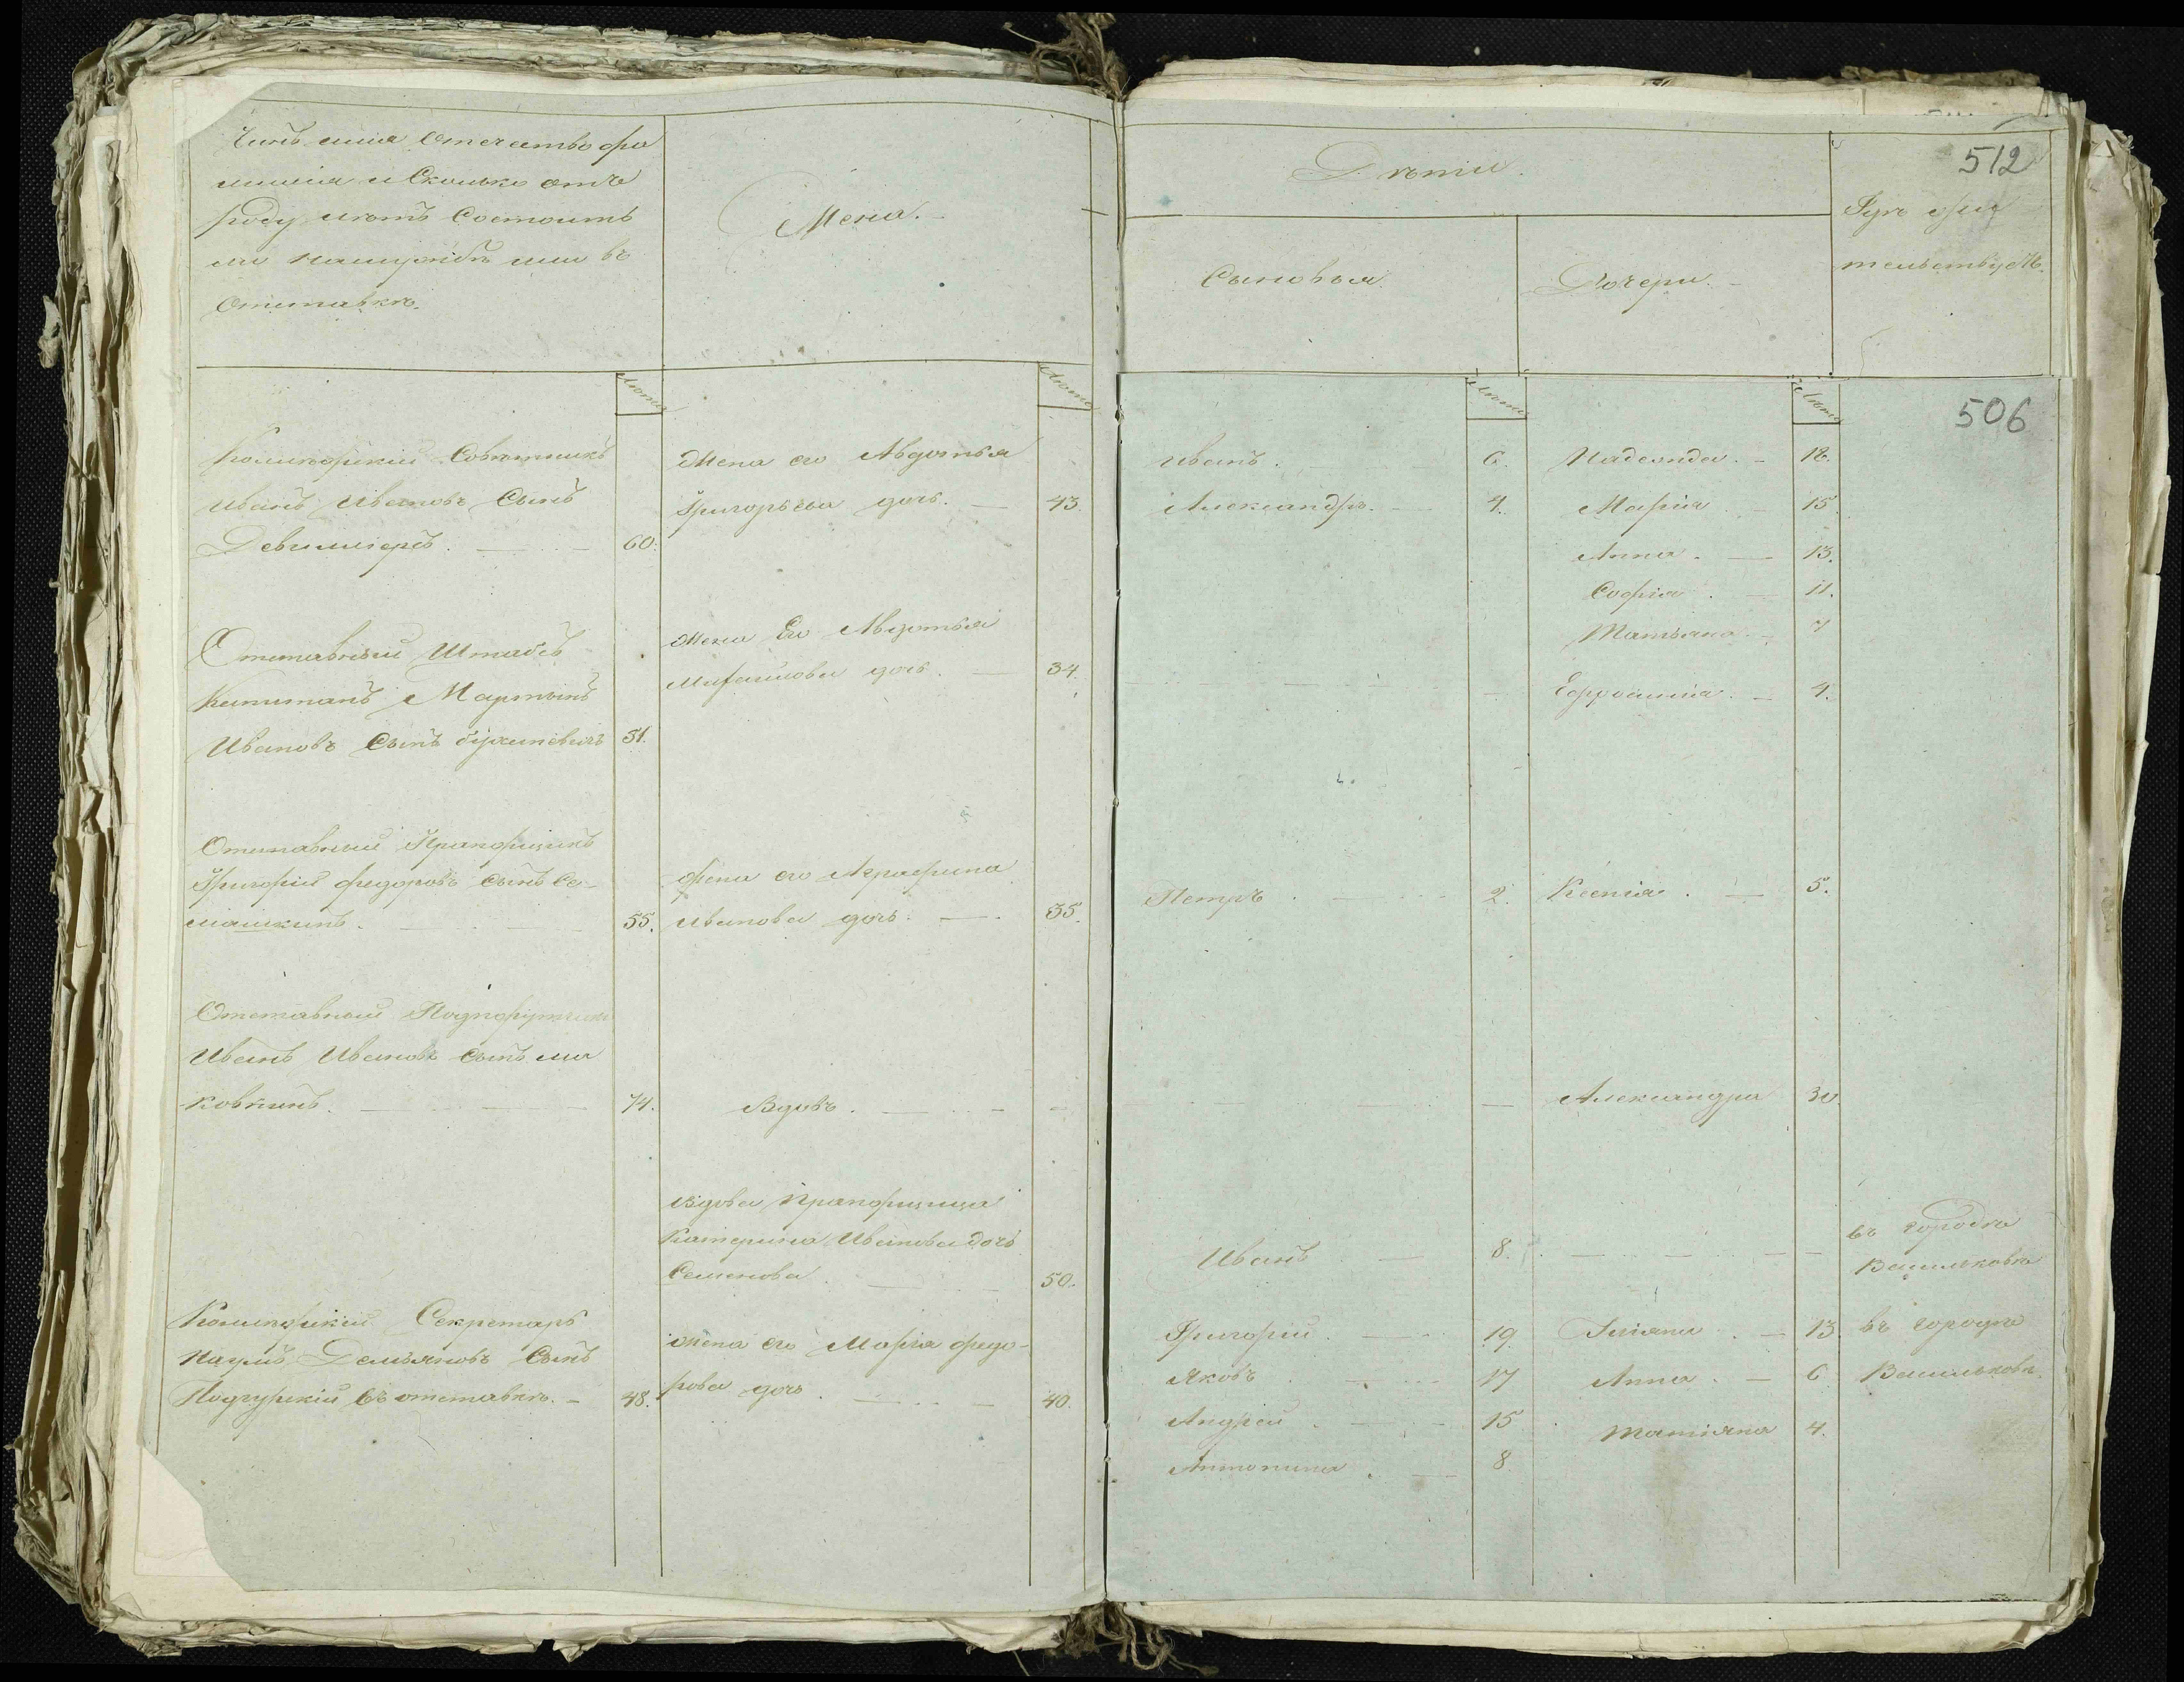 Чинъ имя отечество фа
милия и Сколько отъ
роду лѣтъ Состоитъ
ли на службѣ или въ
отставкѣ.
Жена.
Дѣти.
Сыновья
Дочери.
512
Гдѣ жи
тельствуетъ.
лѣта
лѣта
лѣта
лѣта
506
Колежскій Совѣтникъ
Иванъ Ивановъ Сынъ
Девиллiеръ. 60.
Жена его Авдотья
Григорьева дочь. 43.
Иванъ. 6.
Александръ. 4.
Надежда. 18.
Марія 15.
Анна. 13.
Софія. 11.
Татьяна. 7
Отставный Штабсъ
Капитанъ Мартынъ
Ивановъ Сынъ 51.
Жена Его Авдотья
Михайлова дочь. 34.
Ефросинія. 4.
Отставный Прапорщикъ
Григорій Федоровъ Сынъ Се-
машкинъ. 55.
Жена его Аграфена
Иванова дочь. 35.
Петръ. 2.
Ксенія. 5.
Отставный Подпорутчикъ
Иванъ Ивановъ Сынъ Ма
ковкинъ. 74.
Вдовъ.
Александра 30.
Вдова Прапорщица
Катерина Иванова дочь
Семенова 50.
Иванъ 8.
въ городѣ
Васильковѣ
Колежскій Секретарь
Наумъ Демьяновъ Сынъ
Подгурскій въ отставкѣ. 48.
Жена его Марія Федо-
рова дочь. 40.
Григорій. 19.
Яковъ. 17
Андрей. 15
Антонина. 8.
Іуліяна. 13.
Анна. 6
Татіяна 4.
въ городѣ
Васильковѣ.